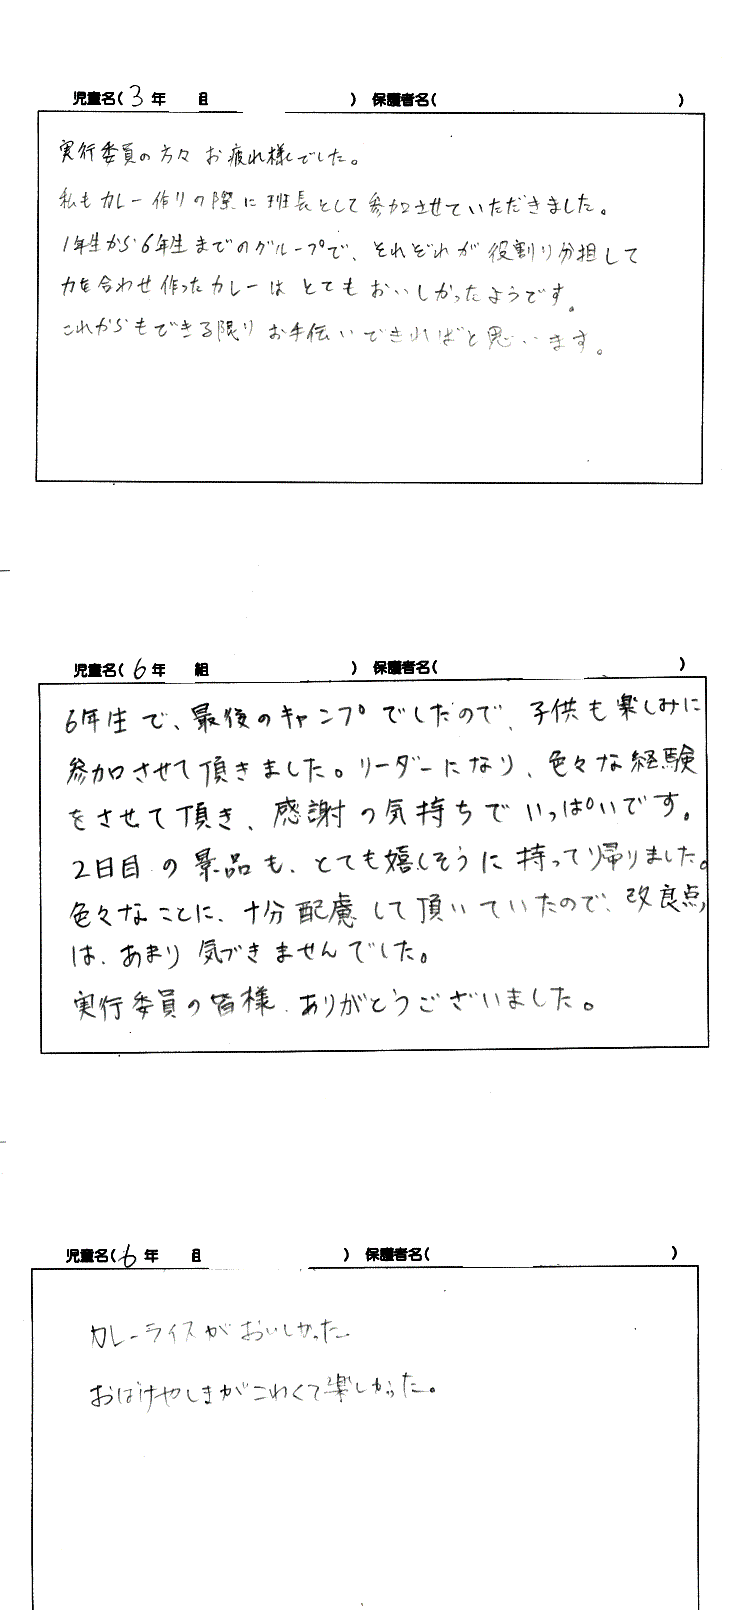 児童名( 3 年 組 ) 保護者名( )
実行委員の方々 お疲れ様でした。
私もカレー作りの際に班長として参加させていただきました。
1年生から6年生までのグループで、それぞれが役割り分担して
力を合わせ作ったカレーは とてもおいしかったようです。
これからもできる限りお手伝いできればと思います。
児童名( 6 年 組 ) 保護者名( )
6年生で、最後のキャンプでしたので、子供も楽しみに
参加させて頂きました。リーダーになり、色々な経験
をさせて頂き、感謝の気持ちでいっぱいです。
2日目の景品も、とても嬉しそうに持って帰りました。
色々なことに、十分配慮して頂いていたので、改良点
は、あまり気づきませんでした。
実行委員の皆様、ありがとうございました。
児童名( 6 年 組 ) 保護者名( )
カレーライスがおいしかった
おばけやしきがこわくて楽しかった。